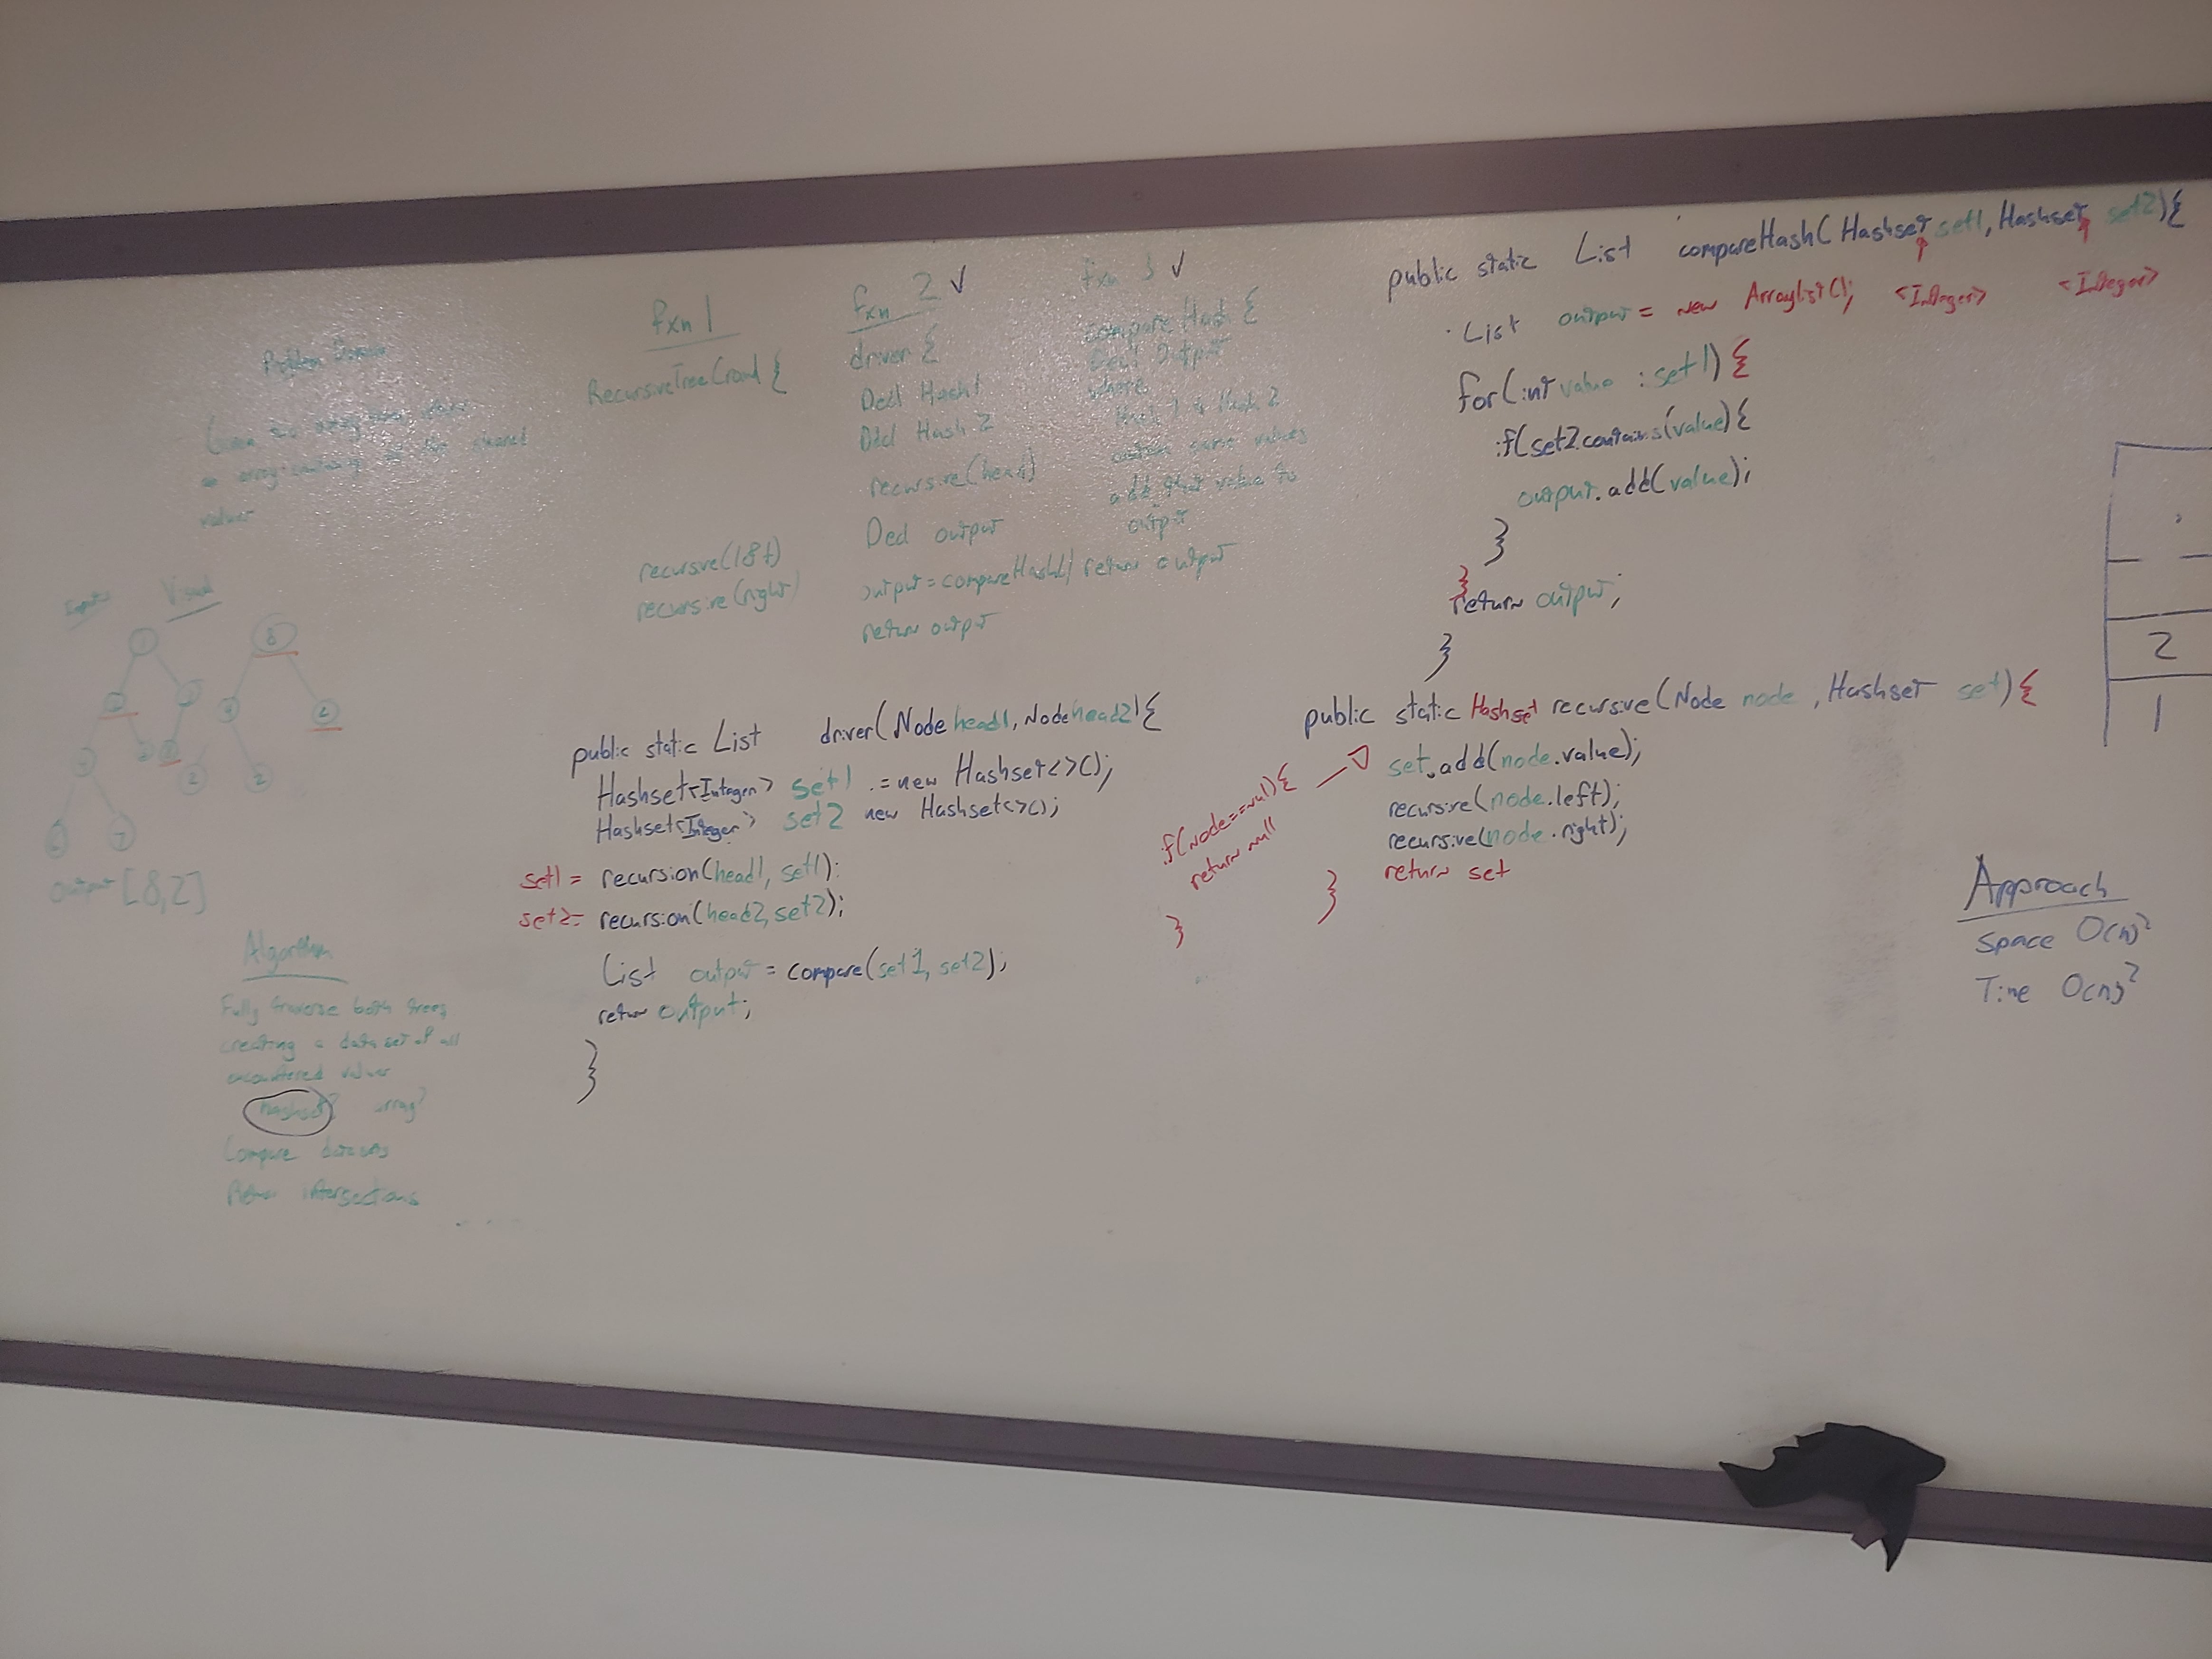 Problem Domain
an array
shared
values
Inputs Visual
1
8
2
2
7
Output [8,2]
Algorithm
Fully traverse both trees
creating a data set of all
encountered values
Hashset? array?
Compare datasets
Return intersections
fxn 1
RecursiveTree(road {
recursve(18t)
recursive(right)
fxn 2 ✓
driver {
Decl Hash1
Decl Hash 2
recursive(head)
Decl output
output = compareHash()
return output
fxn 3 ✓
compare Hash {
Decl Output
where
Hash 1 & Hash 2
contain same values
add that value to
output
return output
public static List driver(Node head1, Node head2){
Hashset<Integer> set1 = new Hashset<>();
Hashset<Integer> set2 new Hashset<>();
set1 = recursion(head1, set1);
set2= recursion(head2, set2);
List output = compare(set1, set2);
return output;
}
public static List compareHash( Hashset set1, Hashset set2){
<Integer> <Integer>
List output = new Arraylist();
for(int value : set1) {
if(set2.contains(value){
output.add(value);
}
}
return output;
}
public static Hashset recursive(Node node , Hashset set){
if(Node==null){
return null
}
set.add(node.value);
recursive(node.left);
recursive(node.right);
return set
}
2
1
Approach
Space O(n)²
Time O(n)²